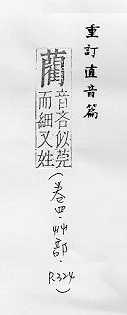 重訂直音篇
藺
音吝似莞
而細又姓
(卷四·艸部·
P.324)